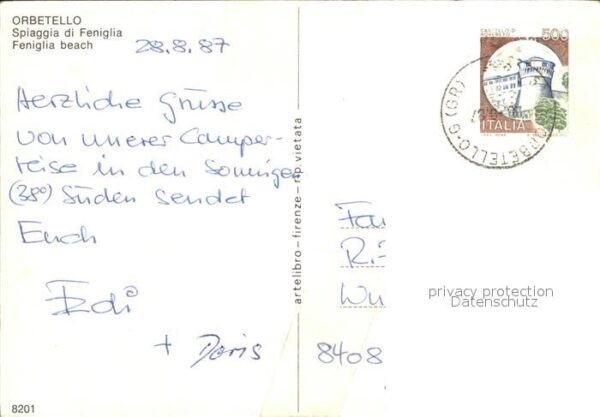 ORBETELLO
Spiaggia di Feniglia
Feniglia beach
28.8.87
Herzliche Grüsse
von unserer Camper-
reise in den Sonnigen
(38°) Süden sendet
Euch
Edi
+ Doris
8201
artelibro - firenze - rip. vietata
500
ITALIA
ORBETELLO-G (GR)
Fa
Ri
Wu
8408
privacy protection
Datenschutz